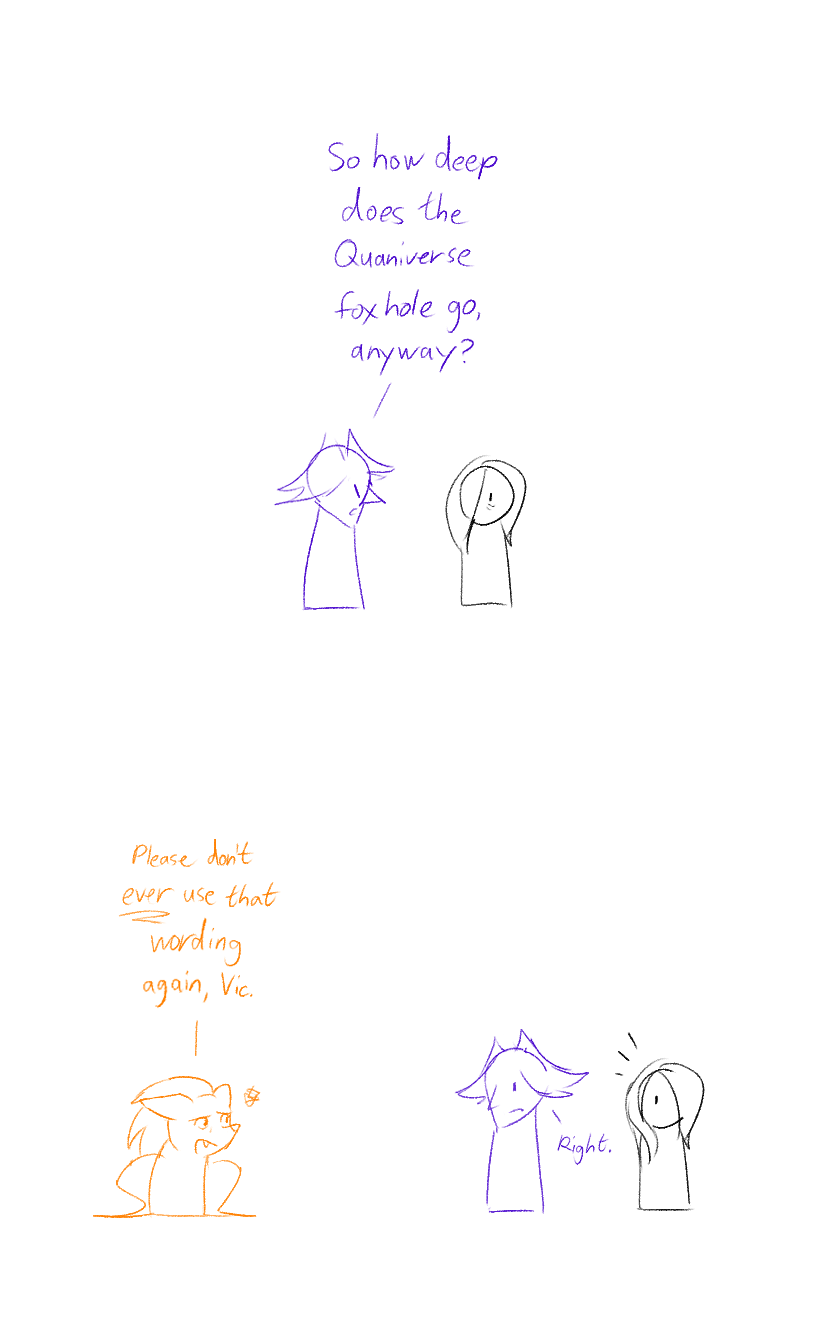 So how deep
does the
Quaniverse
foxhole go,
anyway?
Please don't
ever use that
wording
again, Vic.
Right.